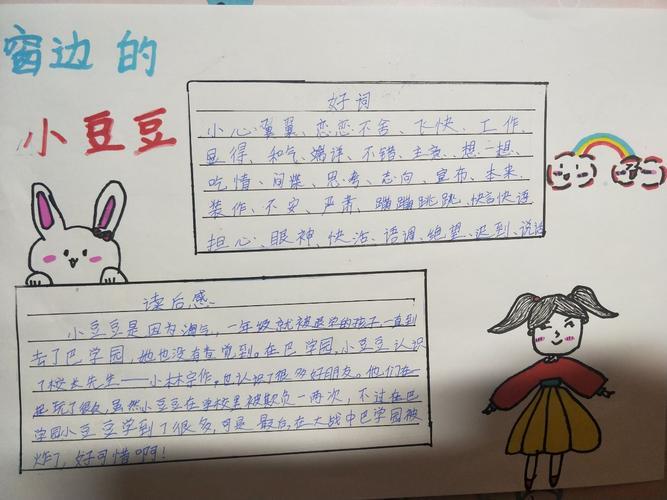 窗边的
小豆豆
好词
小心翼翼、恋恋不舍、飞快、工作、
显得、和气、端详、不错、主意、想一想、
吃惊、间谍、思考、志向、宣布、本来、
装作、不安、严肃、蹦蹦跳跳、快言快语
担心、眼神、快活、语调、绝望、迟到、说话
读后感
小豆豆是因为淘气,一年级就被退学的孩子,一直到
去了巴学园,她也没有查觉到。在巴学园,小豆豆认识
了校长先生——小林宗作,也认识了很多好朋友。他们在一
起玩了很久,虽然小豆豆在学校里被欺负一两次,不过在巴
学园小豆豆学到了很多,可是最后,在大战中巴学园被
炸了,好可惜啊!